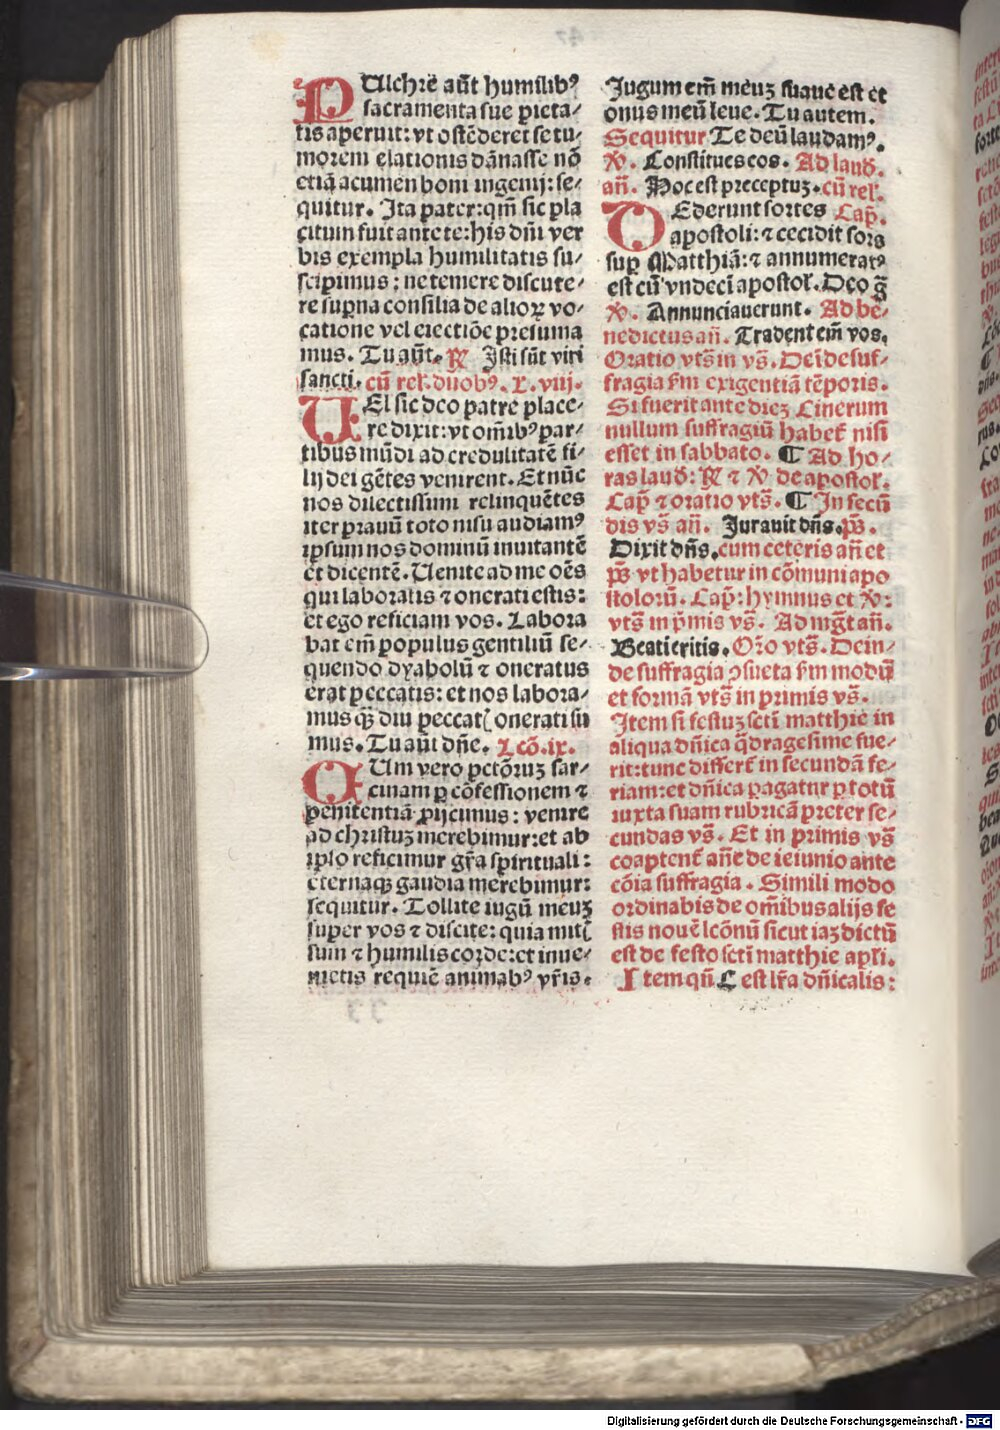 PUlchre aūt humilibꝰ
sacramenta sue pieta/
tis aperuit: vt ostēderet se tu/
morem elationis dānasse nō
etiā acumen boni ingenij: se/
quitur. Ita pater: qm̄ sic pla
citum fuit ante te: his dn̄i ver
bis exempla humilitatis su/
scipimus: ne temere discute/
re supna consilia de alioꝝ vo/
catione vel eiectiōe presuma
mus. Tu aūt. ℟ Isti sūt viri
sancti. cū rel. duobꝰ. L. viij.
UEl sic deo patre place/
re dixit: vt om̄ibꝰ par/
tibus mūdi ad credulitatē fi/
lij dei gētes venirent. Et nūc
nos dilectissimi relinquētes
iter prauū toto nisu audiamꝰ
ipsum nos dominū inuitantē
et dicentē. Uenite ad me oēs
qui laboratis ⁊ onerati estis:
et ego reficiam vos. Labora
bat em̄ populus gentiliū se/
quendo dyabolū ⁊ oneratus
erat peccatis: et nos labora/
mus qꝫ diu peccat{ onerati su
mus. Tu aūt dn̄e. Lcō. ix.
CUm vero pctōruꝫ sar/
cinam p cōfessionem ⁊
penitentiā pijcimus: venire
ad christuꝫ merebimur: et ab
ipso reficimur gr̄a spirituali:
eternaqꝫ gaudia merebimur:
sequitur. Tollite iugū meuꝫ
super vos ⁊ discite: quia mit{
sum ⁊ humilis corde: et inue/
nietis requiē animabꝰ vr̄is.
Jugum em̄ meuꝫ suaue est et
onus meū leue. Tu autem.
Sequitur Te deū laudamꝰ.
℣. Constitues eos. Ad laud̄.
an̄. Hoc est preceptuꝫ. cū rel.
DEderunt sortes Cap.
apostoli: ⁊ cecidit sors
sup Matthiā: ⁊ annumeratꝰ
est cū vndeci apostol. Deo g̃
℣. Annunciauerunt. Ad be/
nedictus an̄. Tradent em̄ vos.
Oratio vts̄ in vs̄. Dein̄ de suf/
fragia fm exigentiā tēporis.
Si fuerit ante dieꝫ Cinerum
nullum suffragiū habet̄ nisi
esset in sabbato. ¶ Ad ho/
ras laud̄: ℟ ⁊ ℣ de apostol.
Cap̄ ⁊ oratio vts̄. ¶ In secū
dis vs̄ an̄. Jurauit dn̄s. ps̄.
Dixit dn̄s. cum ceteris an̄ et
ps̄ vt habetur in cōmuni apo
stolorū. Cap̄: hymnus et ℣:
vts̄ in pmis vs̄. Ad mgt̄ an̄.
Beati eritis. Or̄o vts̄. Dein/
de suffragia ↄsueta fm modū
et formā vts̄ in primis vs̄.
Item si festuꝫ scti matthie in
aliqua dn̄ica q̄dragesime fue/
rit: tunc differt̄ in secundā fe/
riam: et dn̄ica pagatur p totū
iuxta suam rubricā preter se/
cundas vs̄. Et in primis vs̄
coaptent̄ an̄e de ieiunio ante
cōia suffragia. Simili modo
ordinabis de om̄ibus alijs fe
stis nouē lcōnū sicut iaꝫ dictū
est de festo scti matthie apli.
Item qn̄ C est lr̄a dn̄icalis:
Digitalisierung gefördert durch die Deutsche Forschungsgemeinschaft - DFG